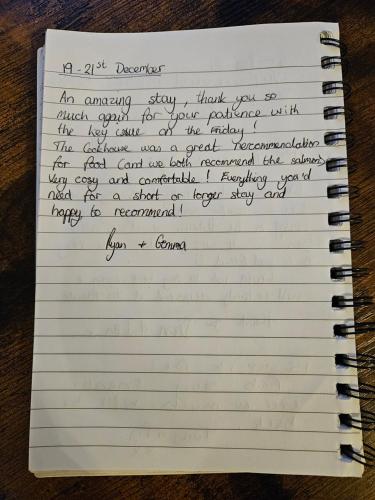 19 - 21st December
An amazing stay, thank you so
much again for your patience with
the key issue on the Friday!
The Cookhouse was a great recommendation
for food (and we both recommend the salmon)
Very cosy and comfortable! Everything you'd
need for a short or longer stay and
happy to recommend!
Ryan + Gemma